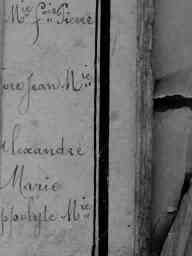 Mie fois Pierre
ore Jean Mie
Alexandre
Marie
ppolyte Mie